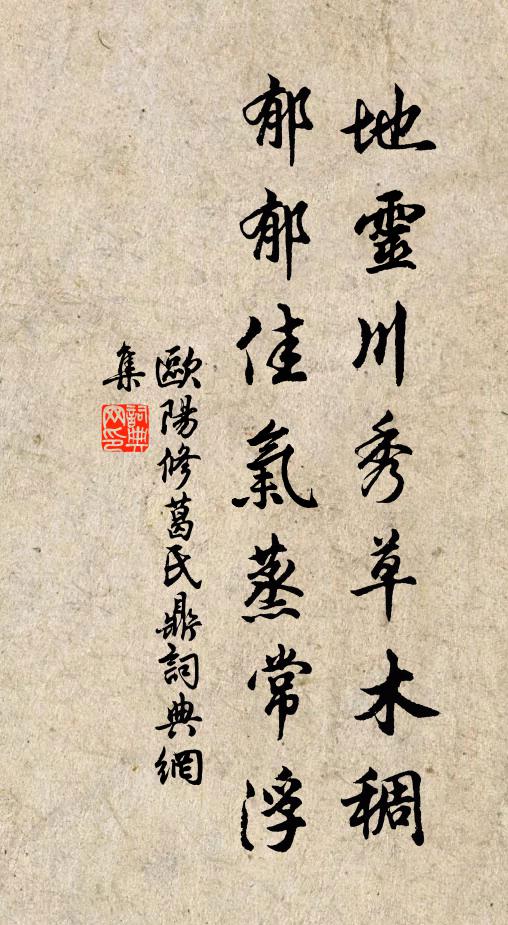 地靈川秀草木稠
郁郁佳氣蒸常浮
歐陽修葛氏鼎詞典網
集
詞典
网印